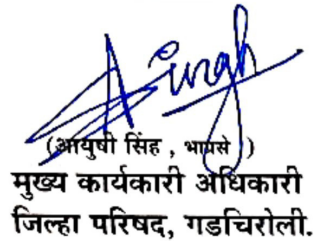 Singh
(आयुषी सिंह , भाप्रसे )
मुख्य कार्यकारी अधिकारी
जिल्हा परिषद, गडचिरोली.